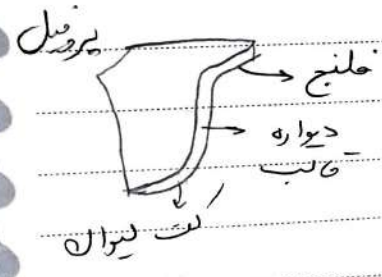 پروفیل
فلنج
دیواره
قالب
کف لیوان